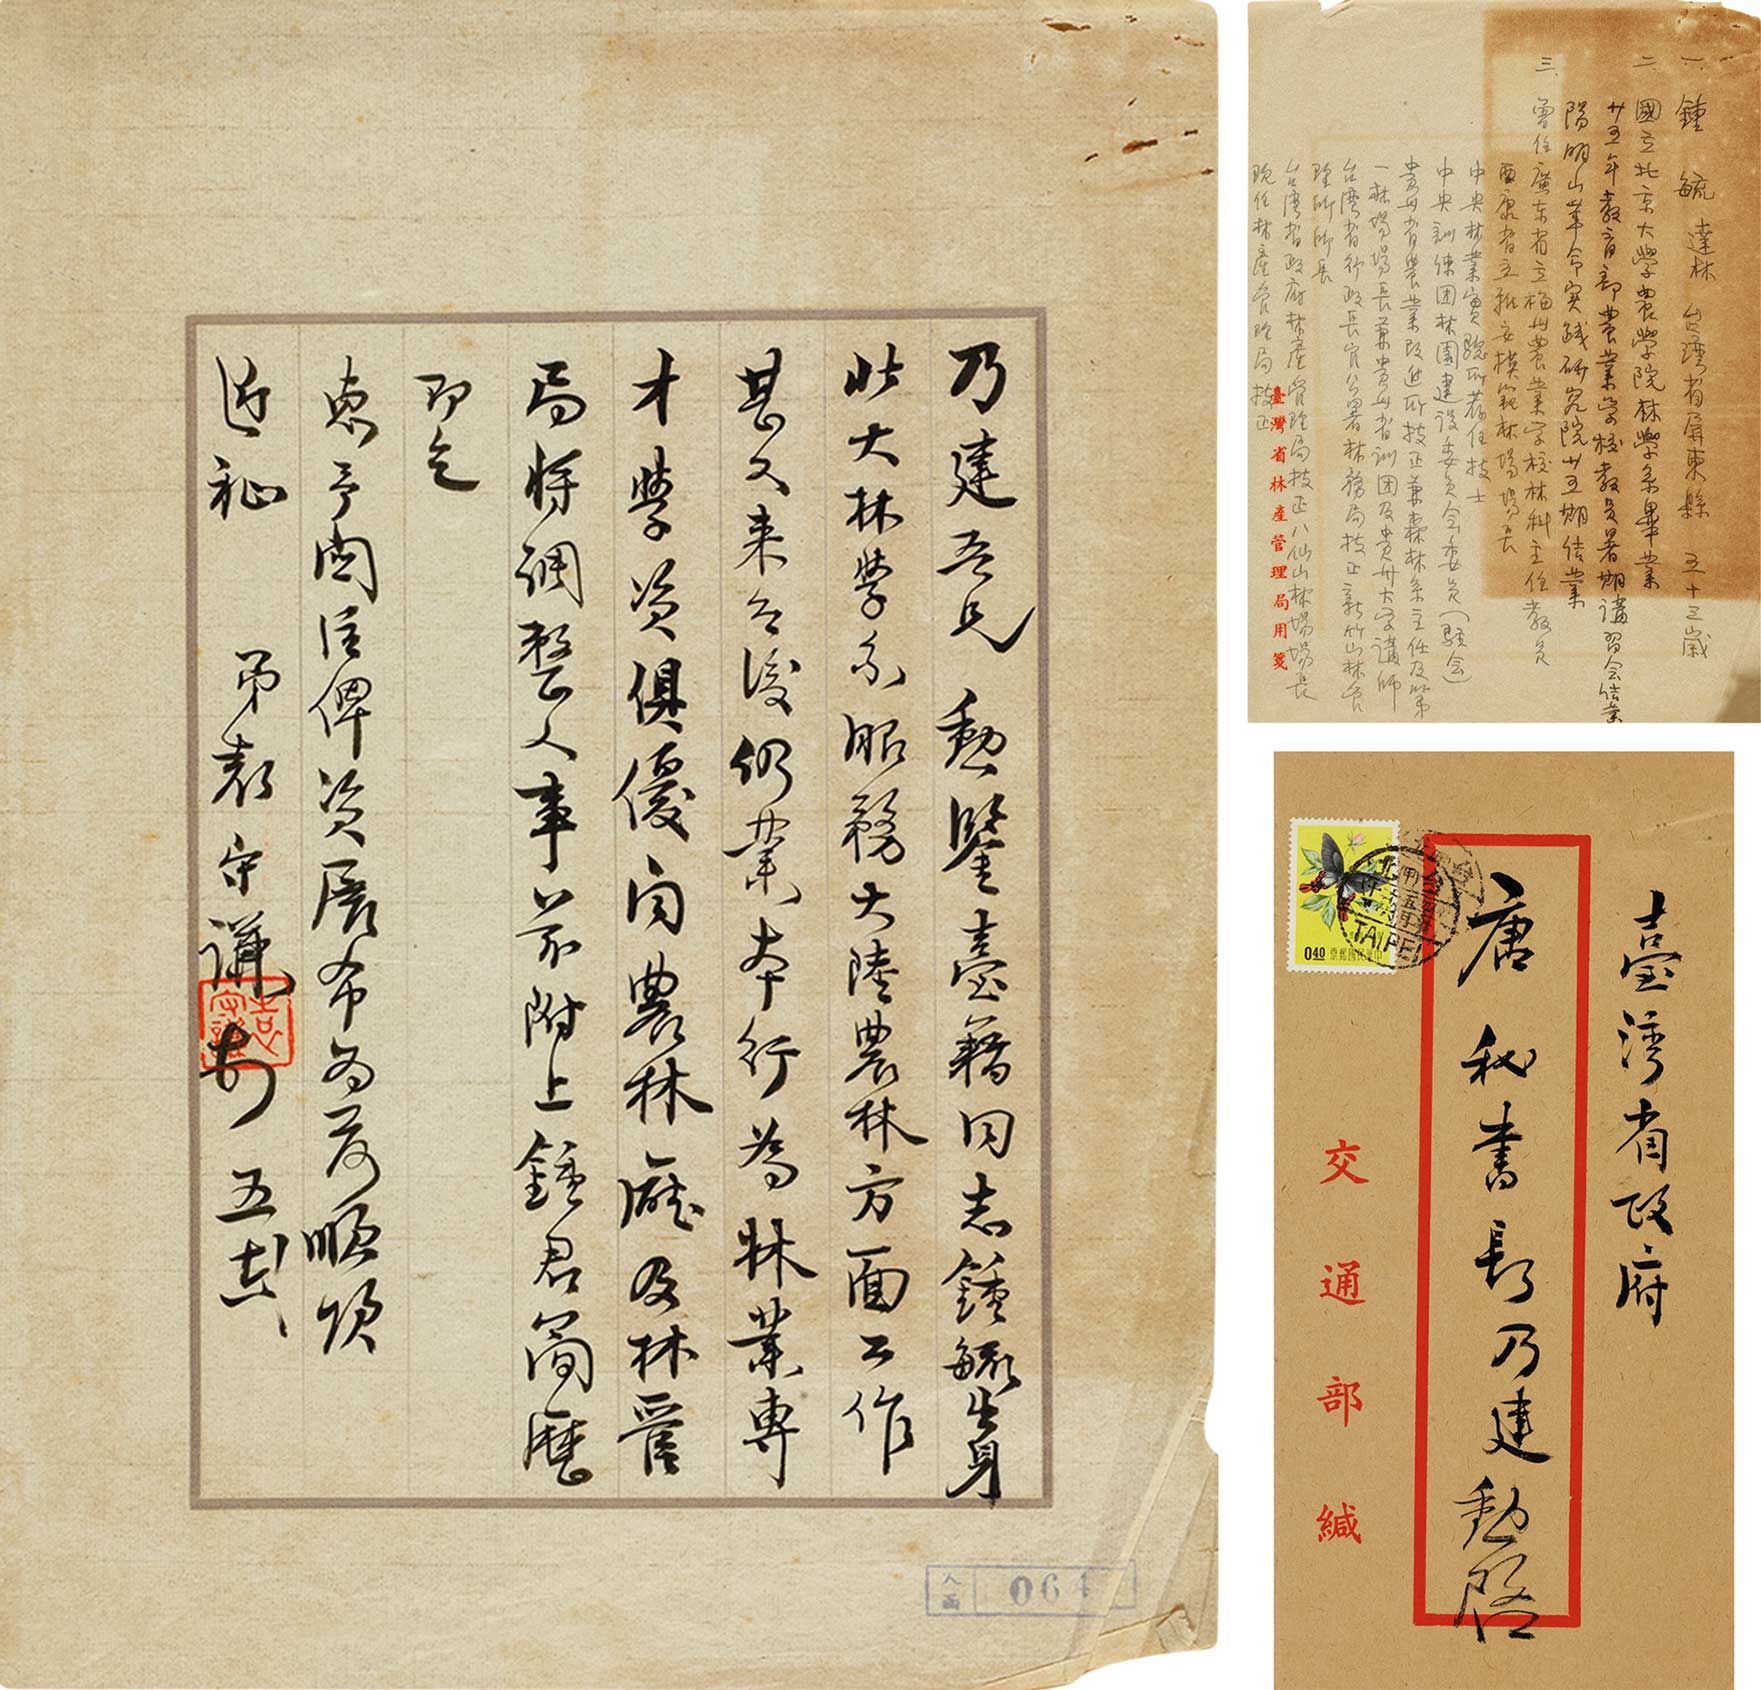 乃建吾兄 勳鑒臺籍同志鍾毓出身
北大林學系服務大陸農林方面工作
甚久来台後仍業本行為林業專
才學資俱優向農林廳及林管
局將調整人事茲附上鍾君簡歷
即乞
惠予關注俾資展布為荷順頌
近祉 弟袁守謙
064
一 鍾毓 達林 台灣省屏東縣 五十三歲
二 國立北京大學農學院林學系畢業
廿五年教育部農業學校教員暑期講習会结業
陽明山革命实践研究院廿五期结業
三 曾任廣东省立梅州農業学校林科主任教員
西康省立雅安模範林場場長
中央林業實驗所荐任技士
中央訓练团林園建设委員会委員(駐会)
貴州省農業改進所技正兼森林系主任及第
一林場場長兼貴州省訓团及貴州大学講师
台灣省行政長官公署林務局技正新竹山林管
理所所長
台灣省政府林產管理局技正八仙山林場場長
现任林產管理局技正
臺灣省林產管理局用箋
臺灣省政府
唐秘書長乃建勳啓
交通部緘
中華民國郵票
0.40
TAIPEI